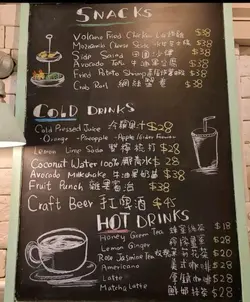 SNACKS
Volcano Fried Chicken $38
Mozzarella Cheese Stick $38
Side Salad 田園沙律 $38
Avocado Tofu 牛油果豆腐 $38
Fried Potato Shrimp $38
Crab Roll 網絲蟹棗 $38
COLD DRINKS
Cold Pressed Juice 冷壓果汁 $28
Orange · Pineapple · Apple
Lemon Lime Soda 雙檸梳打 $28
Coconut Water 100% 椰青水 $28
Avocado Milkshake 牛油果奶昔 $38
Fruit Punch 雜果賓治 $38
Craft Beer 手工啤酒 $45
HOT DRINKS
Honey Green Tea 蜂蜜綠茶 $18
Lemon Ginger $28
Rose Jasmine Tea 玫瑰茉莉花茶 $20
Americano 美式咖啡 $28
Latte $28
Matcha Latte $28